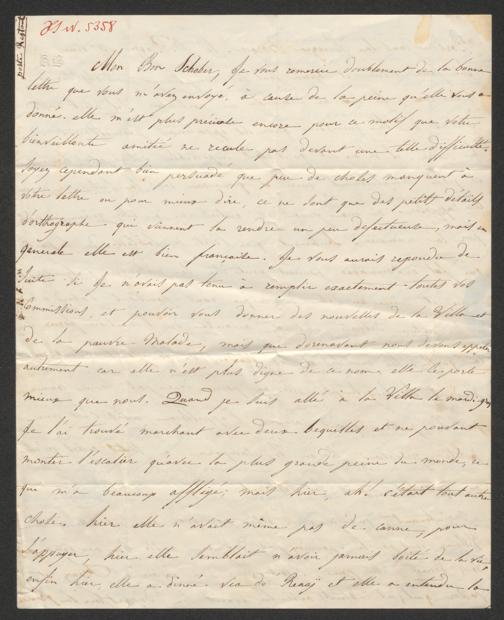 JN. 5358
poste Restante
Mon Bon Schober, Je vous remercie doublement de la bonne
lettre que vous m'avez envoyé, à cause de la peine qu'elle vous a
donné. elle m'est plus précieuse encore pour ce motif que votre
bienveillante amitié ne recule pas devant une telle difficulté.
soyez cependant bien persuadé que peu de choses manquent à
votre lettre ou pour mieux dire, ce ne sont que des petits détails
d'orthographe qui viennent la rendre un peu defectueuse, mais en
générale elle est bien française. Je vous aurais repondu de
suite si Je n'avais pas tenu à remplir exactement toutes vos
Commissions, et pouvoir vous donner des nouvelles de la Villa et
de la pauvre Malade, mais que dorenavant nous devons appeler
autrement car elle n'est plus digne de ce nom. elle se porte
mieux que nous. Quand je suis allé à la Villa le mardi
Je l'ai trouvé marchant avec deux bequilles et ne pouvant
monter l'escalier qu'avec la plus grande peine du monde, ce
qui m'a beaucoup affligé; mais hier, ah! c'était tout autre
chose. hier elle n'avait même pas de canne, pour
s'appuyer, hier elle semblait n'avoir jamais boité de la vie,
enfin hier, elle a dinée et elle a entendu la